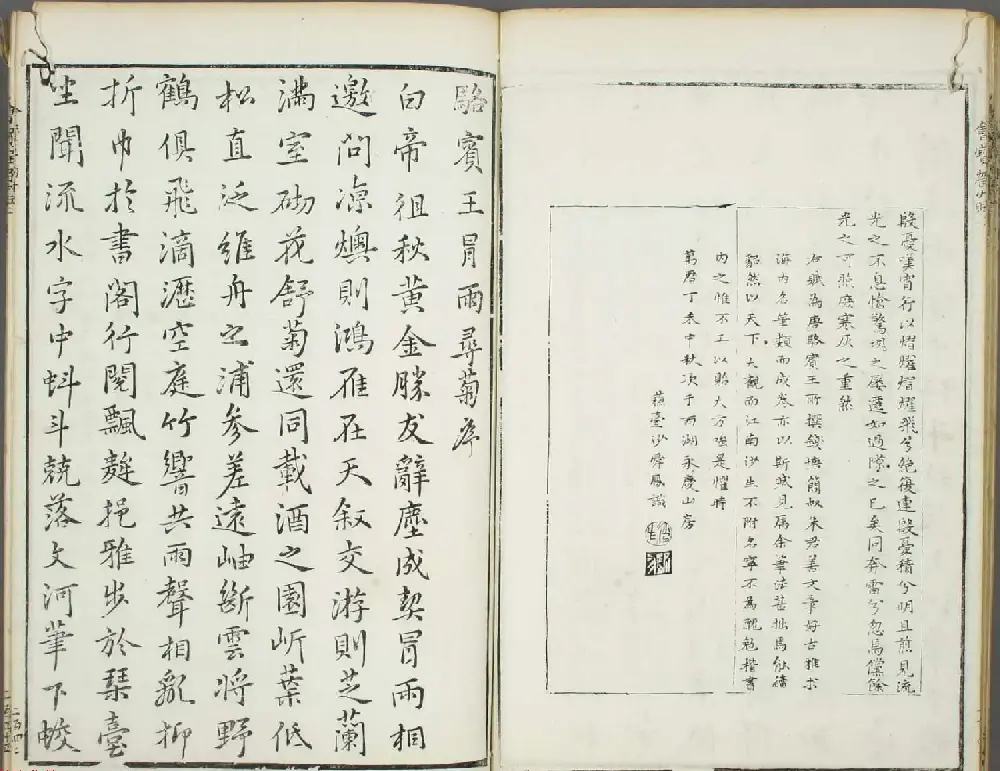 殷憂漢宵行以熠燿熠燿飛兮絕復連殷憂積兮明且煎見流
光之不息愴驚魂之屢遷如過隙之已矣同奔電兮忽焉儻餘
光之可照庶寒灰之重然
右賦為唐駱賓王所撰錢塘簡叔朱君善文章好古推求
海內名筆類而成卷亦以斯賦見屬余筆法舊拙焉能擅
然以天下大觀而江南沙生不附名寧不為醜楷書
內之惟不工以貽大方強是懼時
萬曆丁未中秋次于西湖永慶山房
臺沙舜鳳識
駱賓王冒雨尋菊序
白帝徂秋黃金勝友辭塵成契冒雨相
邀問涼燠則鴻雁在天敘交游則芝蘭
滿室砌花舒菊還同載酒之園岍葉低
松直泛維舟之浦參差遠岫斷雲將野
鶴俱飛滴瀝空庭竹響共雨聲相亂抑
折巾於書閣行閱飄挹雅步於琴臺
坐聞流水字中蚪斗競落文河筆下蛟